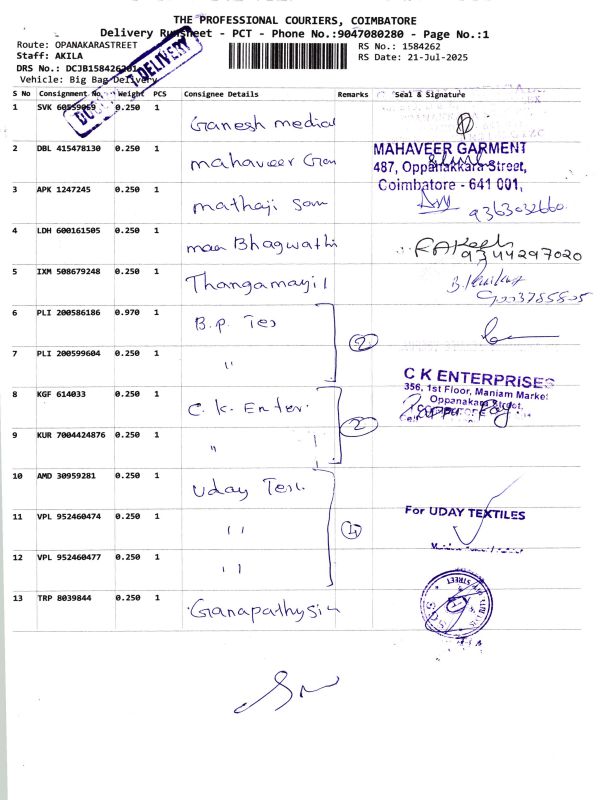 THE PROFESSIONAL COURIERS, COIMBATORE
Delivery Runsheet - PCT - Phone No.:9047080280 - Page No.:1
Route: OPANAKARASTREET
RS No.: 1584262
Staff: AKILA
RS Date: 21-Jul-2025
DRS No.: DCJB158426201
Vehicle: Big Bag Delivery
DOCUMENT DELIVERY
S No Consignment No. Weight PCS Consignee Details Remarks Seal & Signature
1 SVK 0.250 1 Ganesh medical
2 DBL 415478130 0.250 1 mahaveer Gar
MAHAVEER GARMENT
487, Oppanakkara Street,
Coimbatore - 641 001,
3 APK 1247245 0.250 1 mathaji
9363032660
4 LDH 600161505 0.250 1 maa Bhagwathi
RAKesh
9344297020
5 IXM 508679248 0.250 1 Thangamayil
9003785505
6 PLI 200586186 0.970 1 B.P. Tex
2
7 PLI 200599604 0.250 1 "
C K ENTERPRISES
356, 1st Floor, Maniam Market
Oppanakara Street,
8 KGF 614033 0.250 1 C.K. Enter
2
9 KUR 7004424876 0.250 1 "
10 AMD 30959281 0.250 1 Uday Tex
For UDAY TEXTILES
11 VPL 952460474 0.250 1 "
4
12 VPL 952460477 0.250 1 "
13 TRP 8039844 0.250 1 Ganapathy